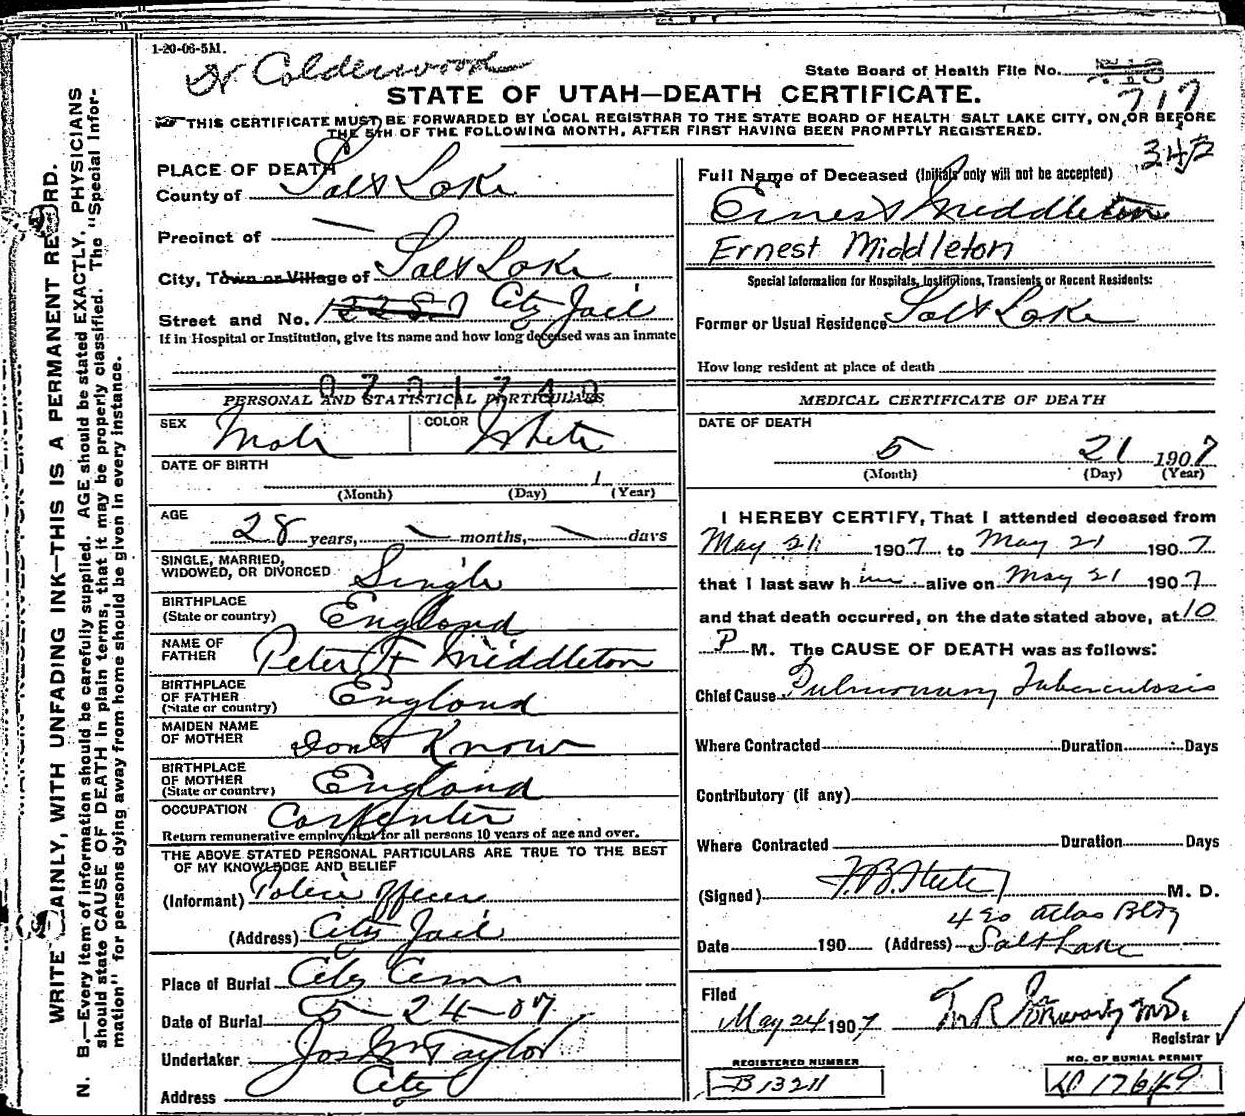 1-20-06-5M.
Calderwood
State Board of Health File No.
717
STATE OF UTAH—DEATH CERTIFICATE.
THIS CERTIFICATE MUST BE FORWARDED BY LOCAL REGISTRAR TO THE STATE BOARD OF HEALTH SALT LAKE CITY, ON OR BEFORE
THE 5TH OF THE FOLLOWING MONTH, AFTER FIRST HAVING BEEN PROMPTLY REGISTERED.
342
PLACE OF DEATH
County of Salt Lake
Precinct of —
City, Town or Village of Salt Lake
Street and No. City Jail
If in Hospital or Institution, give its name and how long deceased was an inmate
PERSONAL AND STATISTICAL PARTICULARS
SEX Male COLOR White
DATE OF BIRTH
1
(Month) (Day) (Year)
AGE
28 years, — months, — days
SINGLE, MARRIED,
WIDOWED, OR DIVORCED Single
BIRTHPLACE
(State or country) England
NAME OF
FATHER Peter F Middleton
BIRTHPLACE
OF FATHER
(State or country) England
MAIDEN NAME
OF MOTHER Dont Know
BIRTHPLACE
OF MOTHER
(State or country) England
OCCUPATION Carpenter
Return remunerative employment for all persons 10 years of age and over.
THE ABOVE STATED PERSONAL PARTICULARS ARE TRUE TO THE BEST
OF MY KNOWLEDGE AND BELIEF
(Informant) Police Officer
(Address) City Jail
Place of Burial City Cem
Date of Burial 5-24-07
Undertaker Jos Wm Taylor
Address City
Full Name of Deceased (Initials only will not be accepted)
Ernest Middleton
Ernest Middleton
Special Information for Hospitals, Institutions, Transients or Recent Residents:
Former or Usual Residence Salt Lake
How long resident at place of death
MEDICAL CERTIFICATE OF DEATH
DATE OF DEATH
5 21 1907
(Month) (Day) (Year)
I HEREBY CERTIFY, That I attended deceased from
May 21 1907 to May 21 1907
that I last saw him alive on May 21 1907
and that death occurred, on the date stated above, at 10
P M. The CAUSE OF DEATH was as follows:
Chief Cause Pulmonary Tuberculosis
Where Contracted Duration Days
Contributory (if any)
Where Contracted Duration Days
(Signed) M. D.
420 Atlas Bldg
Date 190 (Address) Salt Lake
Filed
May 24 1907
Registrar
REGISTERED NUMBER
B 1321
NO. OF BURIAL PERMIT
17649
WRITE PLAINLY, WITH UNFADING INK—THIS IS A PERMANENT RECORD.
N. B.—Every item of information should be carefully supplied. AGE should be stated EXACTLY, PHYSICIANS
should state CAUSE OF DEATH in plain terms, that it may be properly classified. The "Special Infor-
mation" for persons dying away from home should be given in every instance.